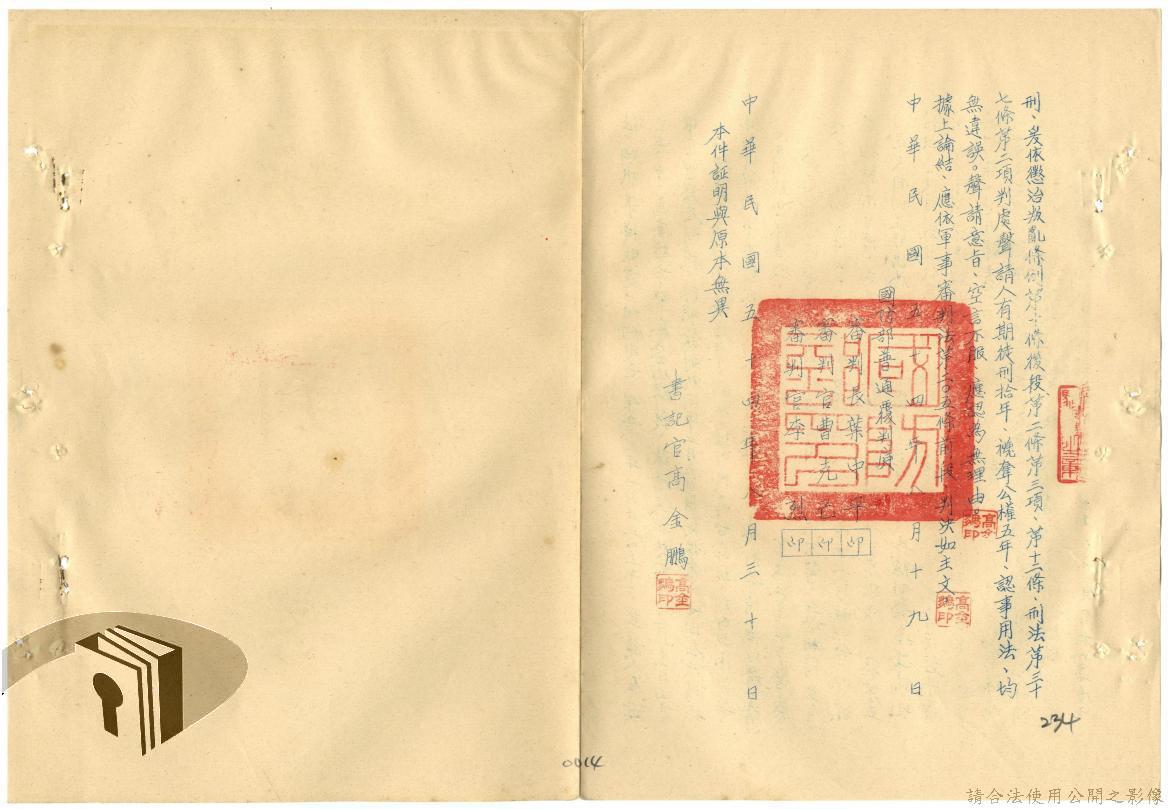 刑、爰依懲治叛亂條例第十條後段第二條第三項、第十二條、刑法第三十
七條第二項判處聲請人有期徒刑拾年、褫奪公權五年、認事用法、均
無違誤。聲請意旨、空言不服、應認為無理由。
據上論結、應依軍事審判法第二〇五條前段判決如主文
中華民國五十四年八月十九日
國防部普通覆判庭
審判長葉中平
審判官曹克
審判官李烈
印
印
印
中華民國五十四年八月三十日
本件証明與原本無異
書記官高金鵬
高金鵬印
高金鵬印
高金鵬印
234
0014
請合法使用公開之影像